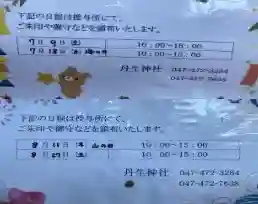 下記の日程は授与所にて、
ご朱印や御守などを頒布いたします。
7月9日(土) 10:00~15:00
7月18日(月) 海の日 10:00~15:00
丹生神社 047-472-3284
047-472-7638
下記の日程は授与所にて、
ご朱印や御守などを頒布いたします。
8月11日(木) 山の日 10:00~15:00
8月27日(土) 10:00~15:00
丹生神社 047-472-3284
047-472-7638